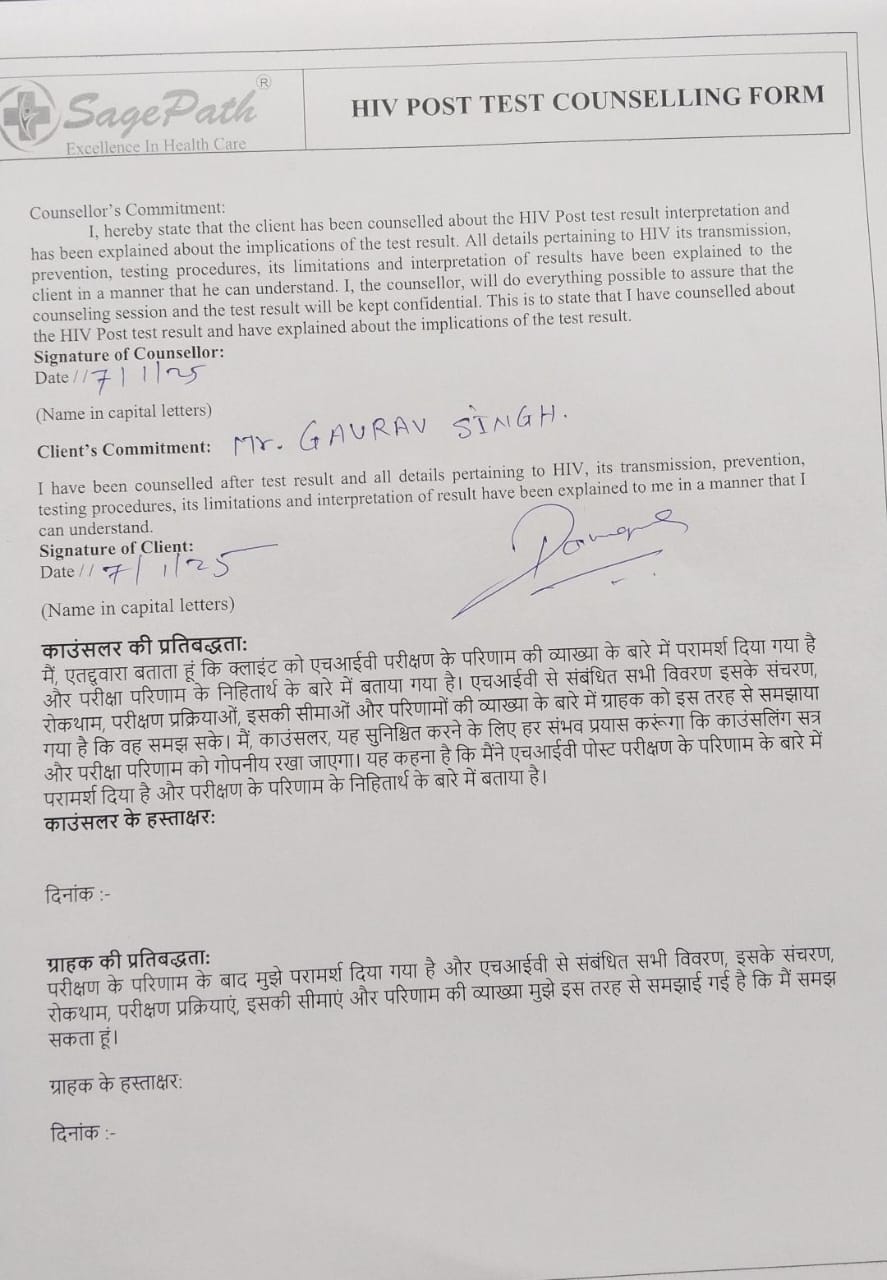 SagePath®
Excellence In Health Care
HIV POST TEST COUNSELLING FORM
Counsellor's Commitment:
I, hereby state that the client has been counselled about the HIV Post test result interpretation and
has been explained about the implications of the test result. All details pertaining to HIV its transmission,
prevention, testing procedures, its limitations and interpretation of results have been explained to the
client in a manner that he can understand. I, the counsellor, will do everything possible to assure that the
counseling session and the test result will be kept confidential. This is to state that I have counselled about
the HIV Post test result and have explained about the implications of the test result.
Signature of Counsellor:
Date // 7/1/25
(Name in capital letters)
Client's Commitment: Mr. GAURAV SINGH.
I have been counselled after test result and all details pertaining to HIV, its transmission, prevention,
testing procedures, its limitations and interpretation of result have been explained to me in a manner that I
can understand.
Signature of Client:
Date // 7/1/25
(Name in capital letters)
काउंसलर की प्रतिबद्धता:
मैं, एतद्द्वारा बताता हूं कि क्लाइंट को एचआईवी परीक्षण के परिणाम की व्याख्या के बारे में परामर्श दिया गया है
और परीक्षा परिणाम के निहितार्थ के बारे में बताया गया है। एचआईवी से संबंधित सभी विवरण इसके संचरण,
रोकथाम, परीक्षण प्रक्रियाओं, इसकी सीमाओं और परिणामों की व्याख्या के बारे में ग्राहक को इस तरह से समझाया
गया है कि वह समझ सके। मैं, काउंसलर, यह सुनिश्चित करने के लिए हर संभव प्रयास करूंगा कि काउंसलिंग सत्र
और परीक्षा परिणाम को गोपनीय रखा जाएगा। यह कहना है कि मैंने एचआईवी पोस्ट परीक्षण के परिणाम के बारे में
परामर्श दिया है और परीक्षण के परिणाम के निहितार्थ के बारे में बताया है।
काउंसलर के हस्ताक्षर:
दिनांक :-
ग्राहक की प्रतिबद्धता:
परीक्षण के परिणाम के बाद मुझे परामर्श दिया गया है और एचआईवी से संबंधित सभी विवरण, इसके संचरण,
रोकथाम, परीक्षण प्रक्रियाएं, इसकी सीमाएं और परिणाम की व्याख्या मुझे इस तरह से समझाई गई है कि मैं समझ
सकता हूं।
ग्राहक के हस्ताक्षर:
दिनांक :-